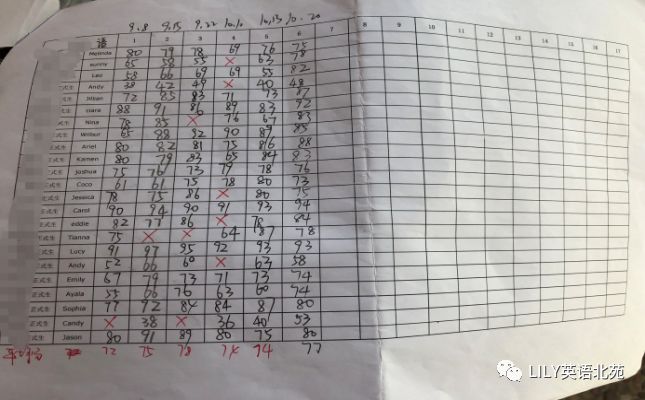 9.8 9.15 9.22 10.13 10.20
语 1 2 3 4 5 6 7 8 9 10 11 12 13 14 15 16 17
Melinda 80 79 78 69 76 75
sunny 65 58 55 × 63 78
Leo 58 66 69 69 55 82
正式生 Andy 38 42 49 × 40 48
正式生 Jillian 72 85 83 71 73 87
正式生 ciara 88 91 86 89 83 92
正式生 Nina 78 85 × 76 67 83
正式生 Wilbur 65 88 92 90 89 85
正式生 Ariel 80 82 81 75 86 88
正式生 Kamen 80 79 83 65 84 83
正式生 Joshua 75 76 73 79 78 76
正式生 Coco 61 61 75 78 80 73
正式生 Jessica 78 75 86 × 80 75
正式生 Carol 90 94 90 91 93 94
正式生 eddie 82 77 86 × 78 84
正式生 Tianna 75 × × 64 87 78
正式生 Lucy 91 97 95 92 93 93
正式生 Andy 52 66 60 × 63 58
正式生 Emily 67 79 73 71 73 74
正式生 Ayala 55 66 76 63 60 74
正式生 Sophia 77 72 84 84 87 80
正式生 Candy × 38 × 36 40 53
正式生 Jason 80 91 89 80 75 80
平均分 72 75 78 74 74 77
LILY英语北苑